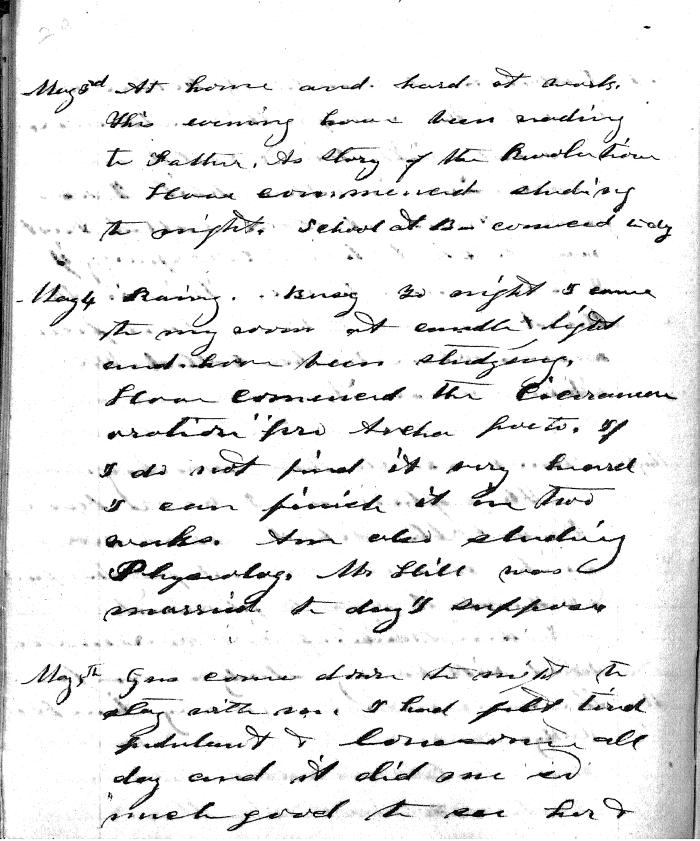 May 3rd At home and hard at work.
This evening have been reading
to Father. A story of the Revolution
Have commenced studing
to night. School at commced tody
May 4 Rainy. Busy To night I came
to my room at candle light
and have been studying.
Have comenced the Ciceronean
oration "pro Archa poeta. If
I do not find it very heard
I can finish it in two
weeks. Am also studing
Physiolog. Mr Hill was
married to day I suppose
May 5th Gus come down to night to
stay with me. I had felt tired
petulant & lonesome all
day and it did me so
much good to see her &